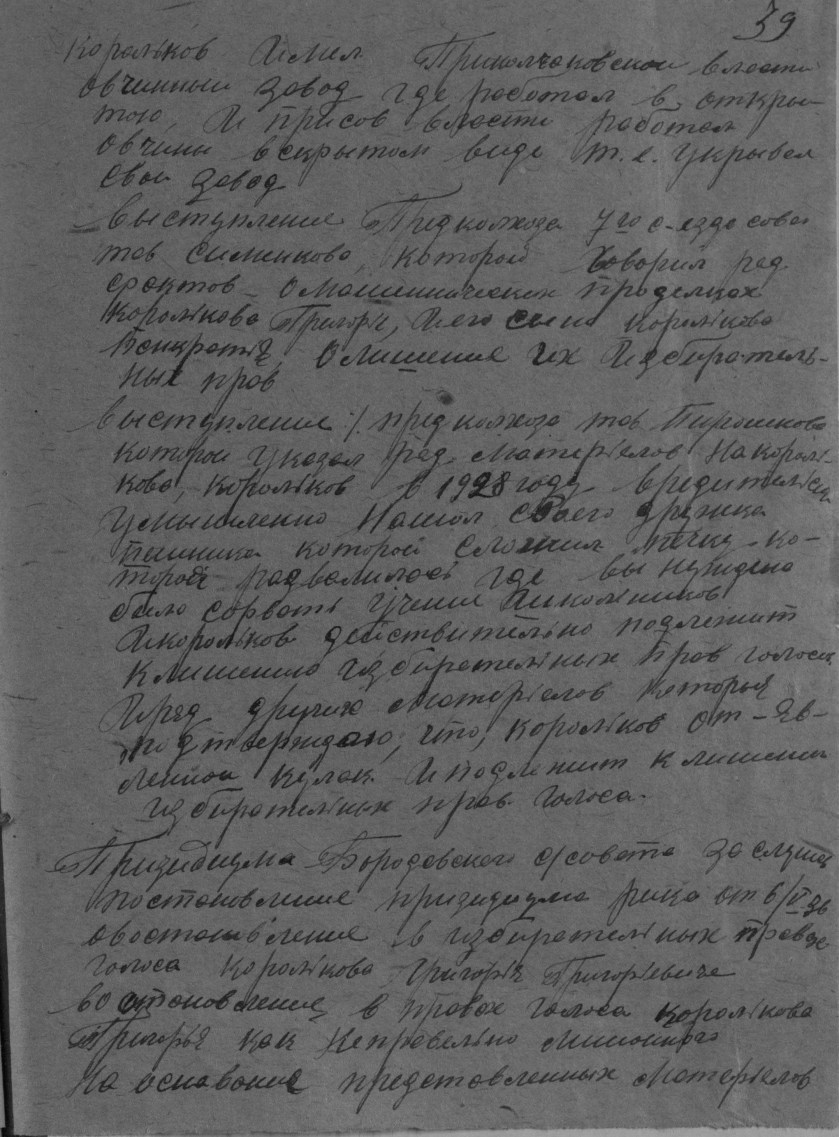 39
Корольков Имел Приколчаковской власти
овчинный завод где работал в откры-
тою, И присов власти работал
овчины вскрытом виде т.е. укрывал
свои завод
Выступление Предколхоза 7го с-езда сове
тов Симинкова, который говорил ряд
фактов о мошеннических проделках
Королькова Григорiя, И его сына Королькова
Панкратiя О лишение их Избиратель-
ных прав
выступление предколхоза тов
которой указал ряд Матерiелов На король-
кова, корольков в 1928 году вредительски
умышленно Нашол своего дружка
печника которой сложил печку ко-
торой развалилась где вынуждено
было сорвать учение Школьников
Икорольков действительно подлежит
клишению избирательных прав голоса
Iряд других Матерiелов которыя
подтверждаю, что, корольков от-яв-
ленной кулак Иподлежит клишению
избирательных прав голоса.
Призидиума Бородовского с/совета заслушав
постоновление призидиума рика от 6/V-36
овостоновление в избирательных правах
голоса Королькова Григорiя Григорiевича
востоновление в правах голоса королькова
Григорья как неправельно лишонного
На основание предстовленных Матерiелов